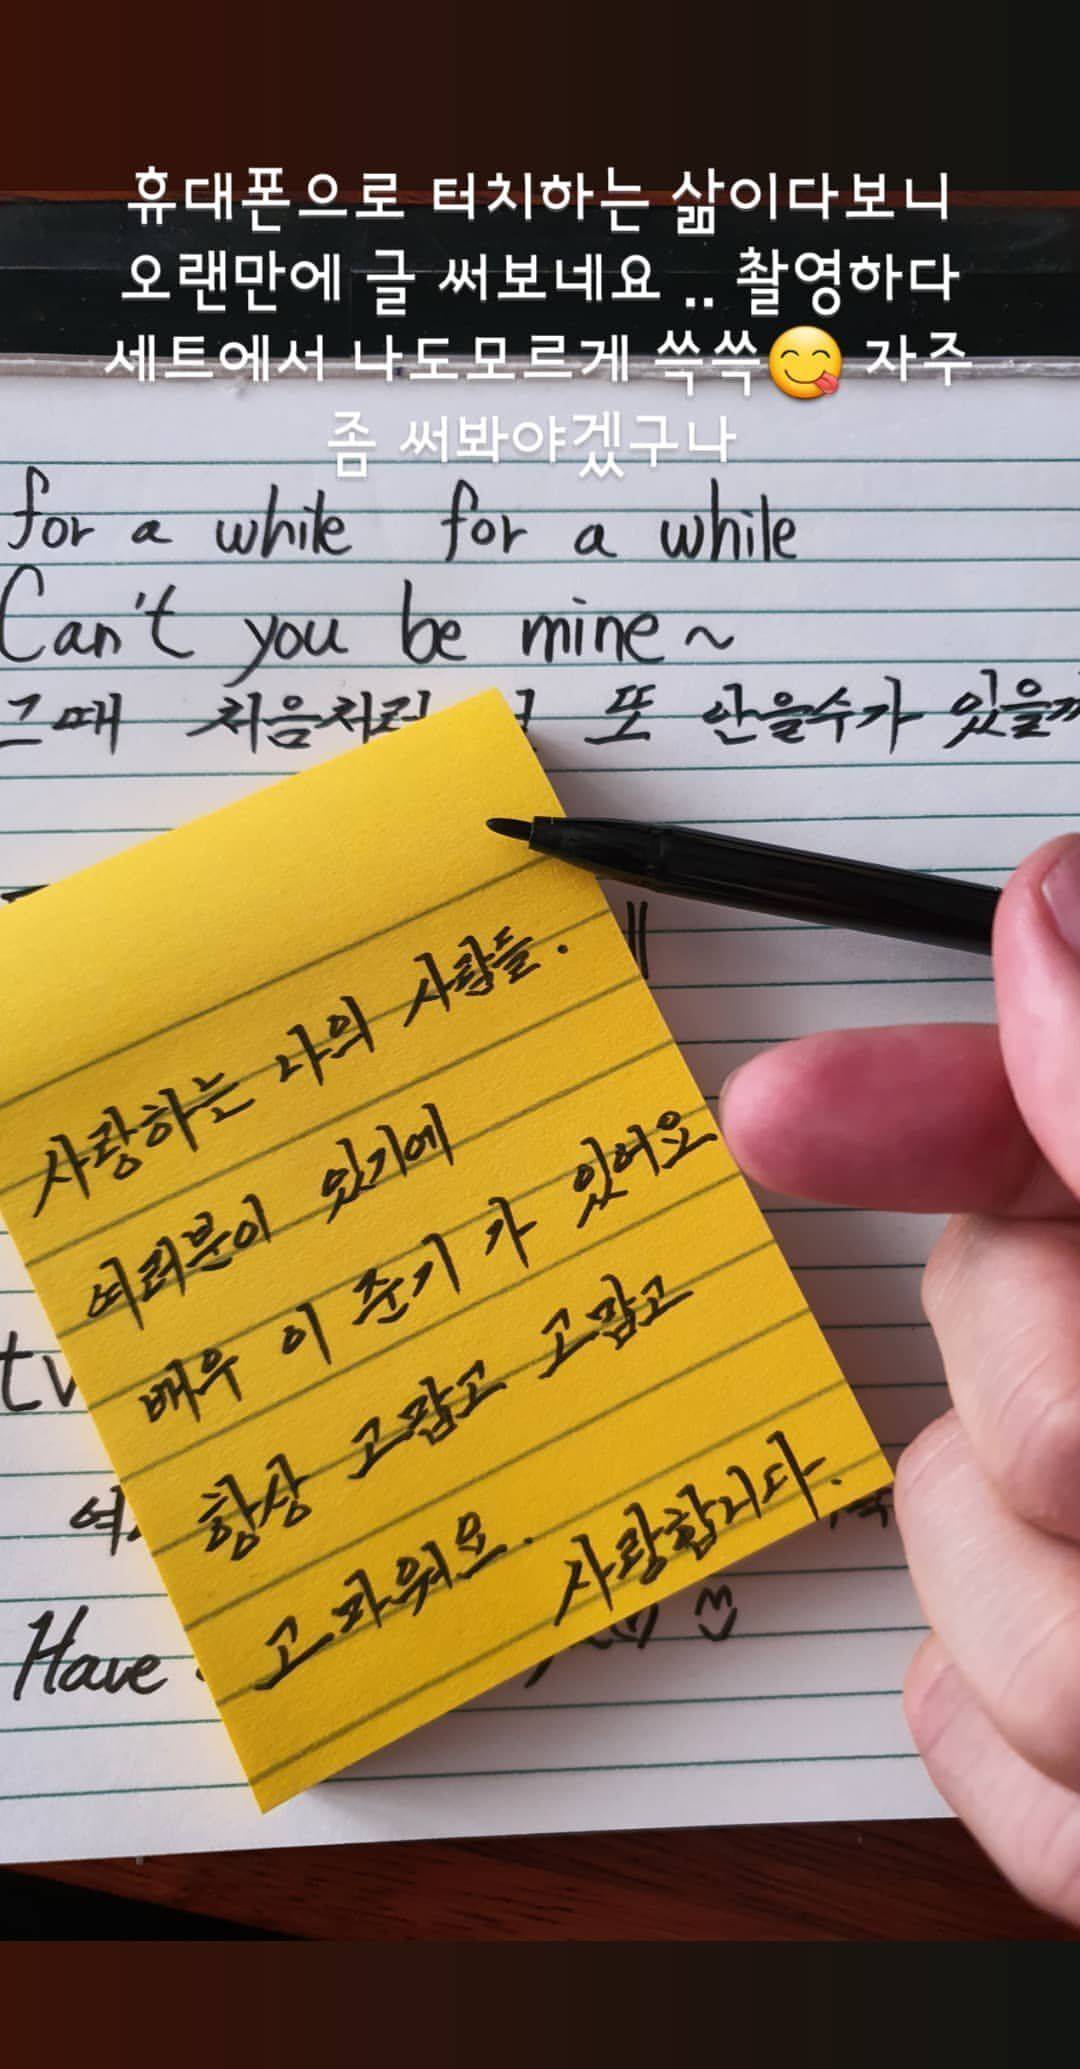 휴대폰으로 터치하는 삶이다보니
오랜만에 글 써보네요 .. 촬영하다
세트에서 나도모르게 쓱쓱😋 자주
좀 써봐야겠구나
for a while for a while
Can't you be mine ~
그때 처음처럼 또 안을수가 있을까
사랑하는 나의 사람들.
여러분이 있기에
배우 이 준기 가 있어요
항상 고맙고 고맙고
고마워요. 사랑합니다.
Have